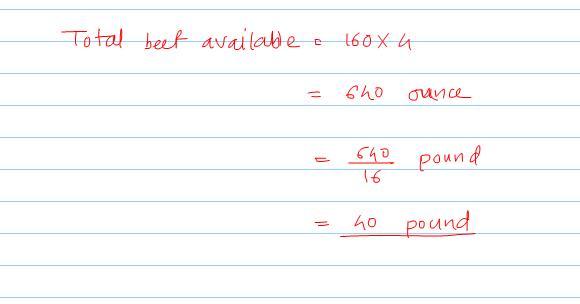 Total beef available = 160 x 4
= 640 ounce
= 640/16 pound
= 40 pound